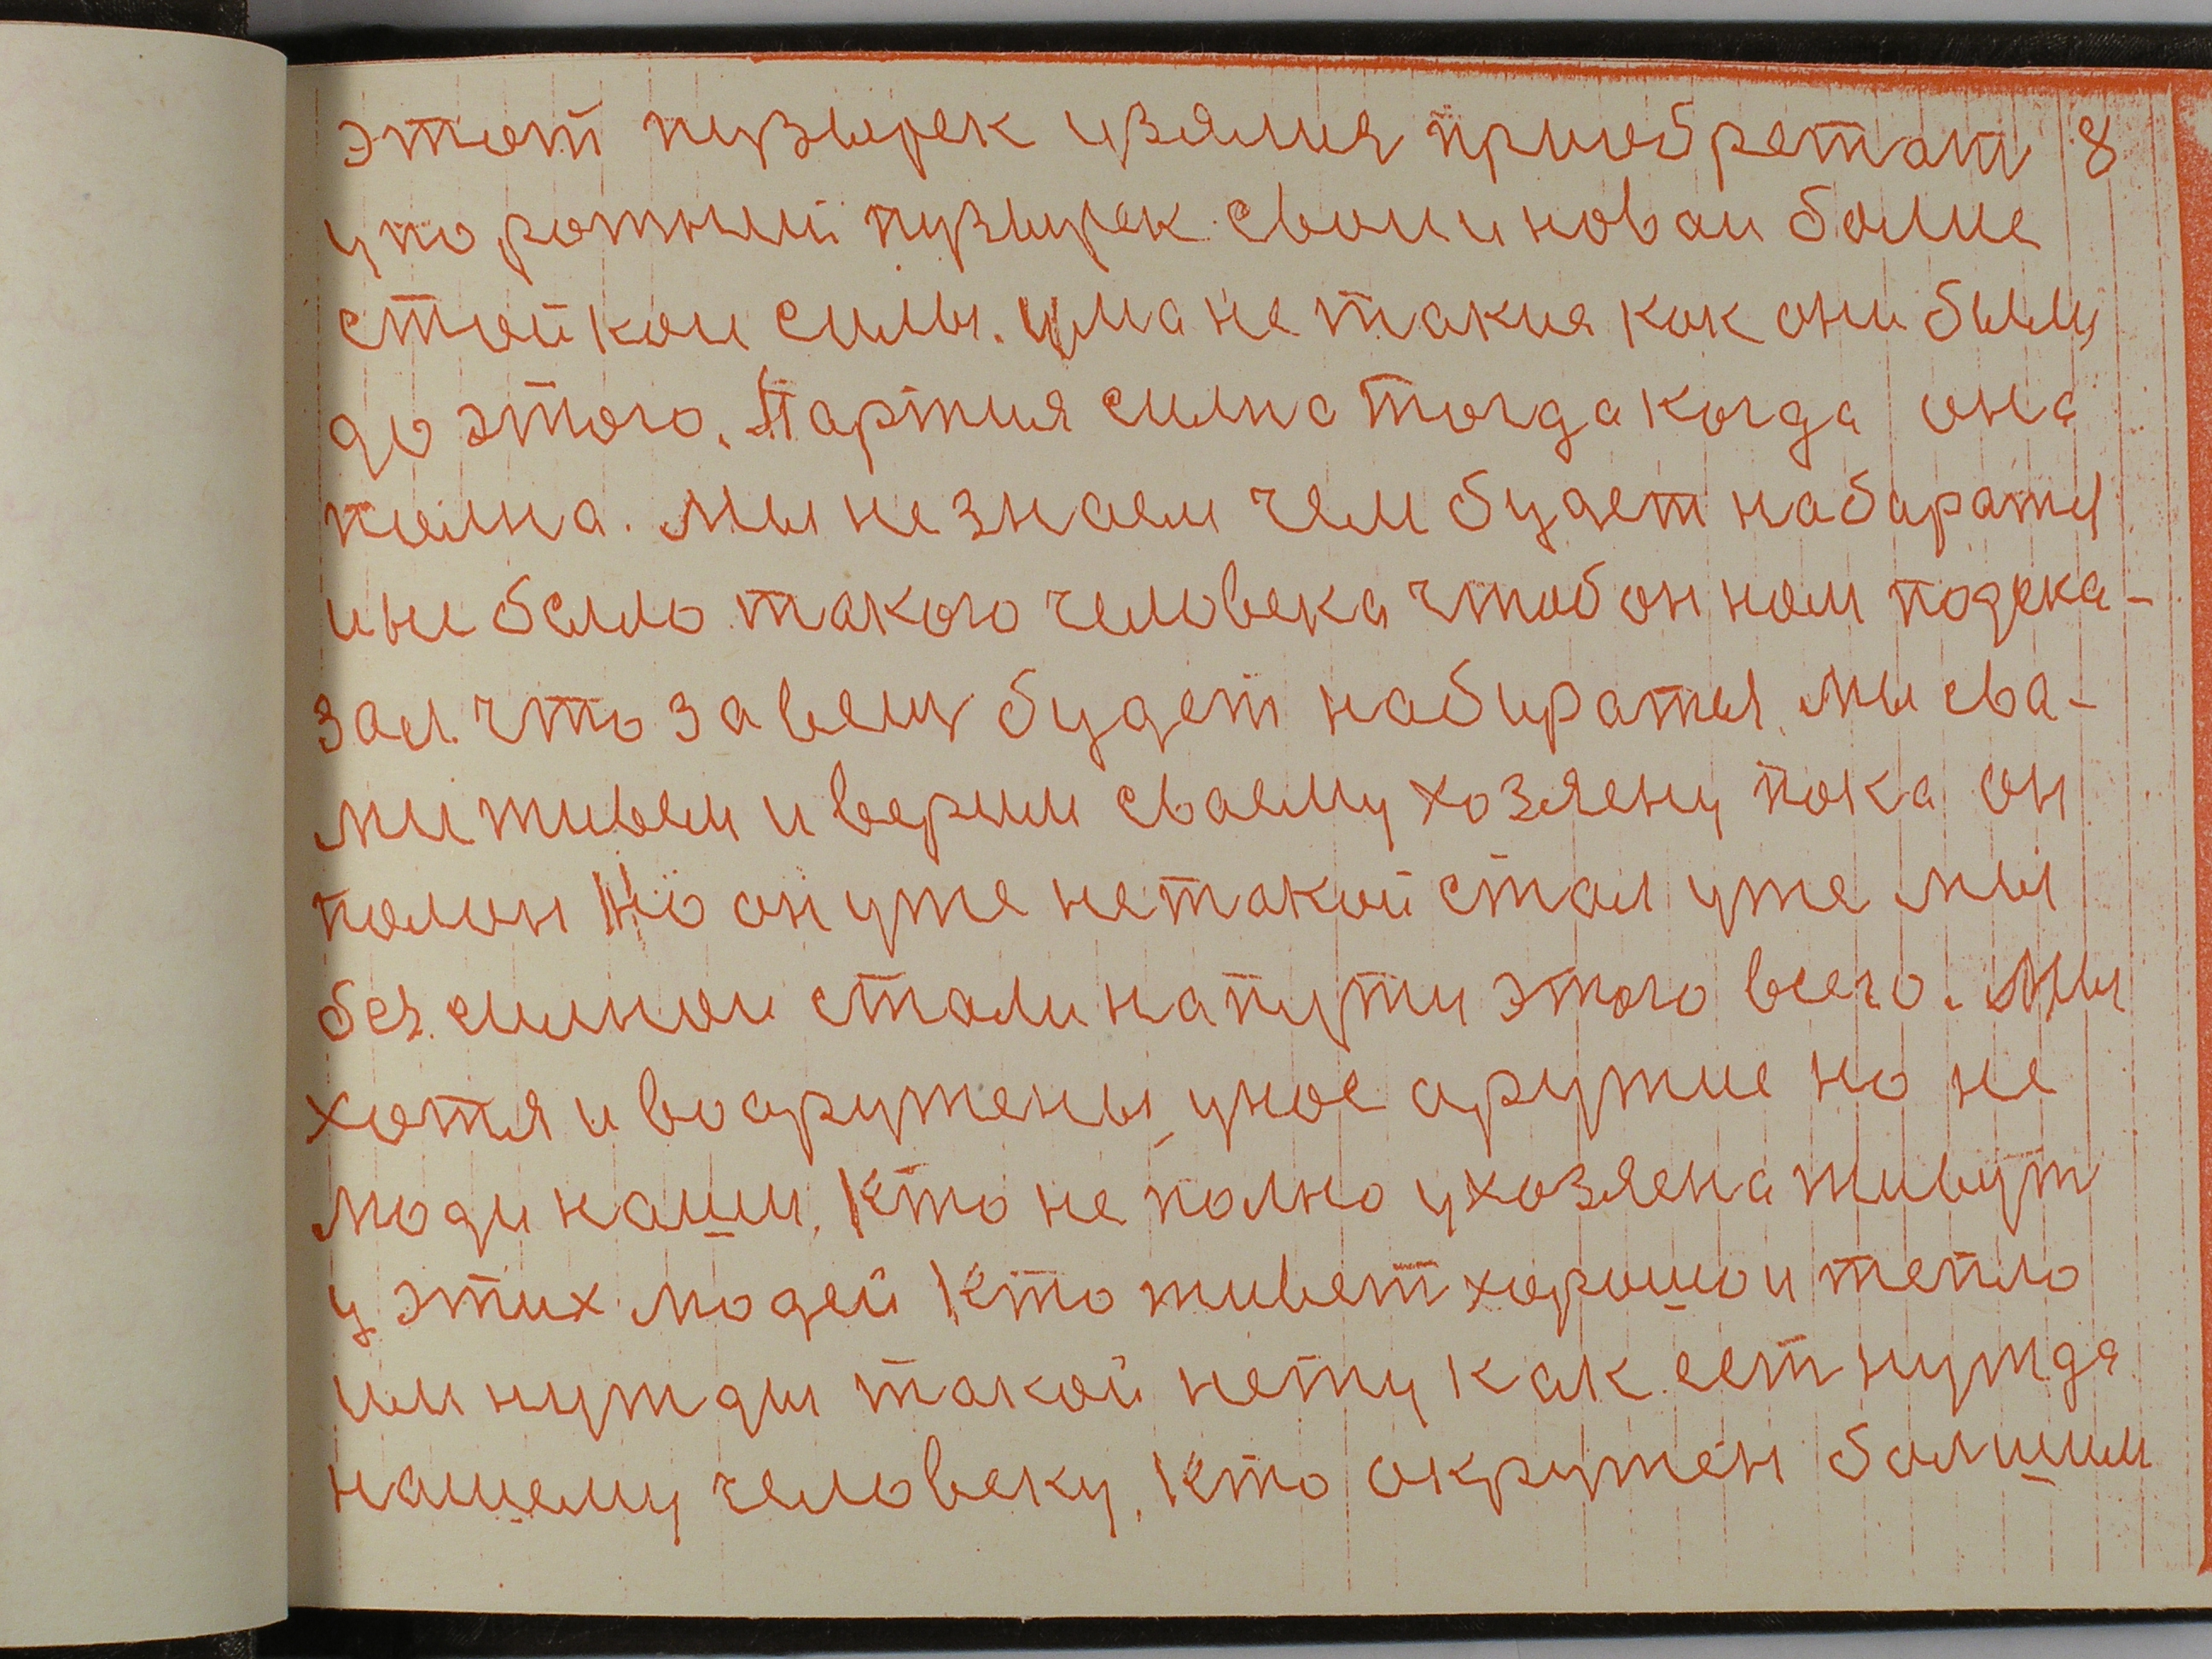 этот пузырек изялия приобретат 8
упоротный пузырек своеи новои болие
стойкои силы. има не такие как они были
до этого. Партия силна тогда когда она
полна. Мы не знаем чем будет набиратся
и не было такого человека чтоб он нам подска-
зал что за вещ будет набиратся мы сва-
ми живем и верим сваему хозяену пока он
полон Но он уже не такой стал уже мы
без силнои стали на пути этого всего. Мы
хотя и вооружены, у нас аружие но не
люди наши. Кто не полно у хозяена живут
у этих людей Кто живет хорошо и тепло
им нужды такой нету как ест нужда
нашему человеку. Кто окружен болшим